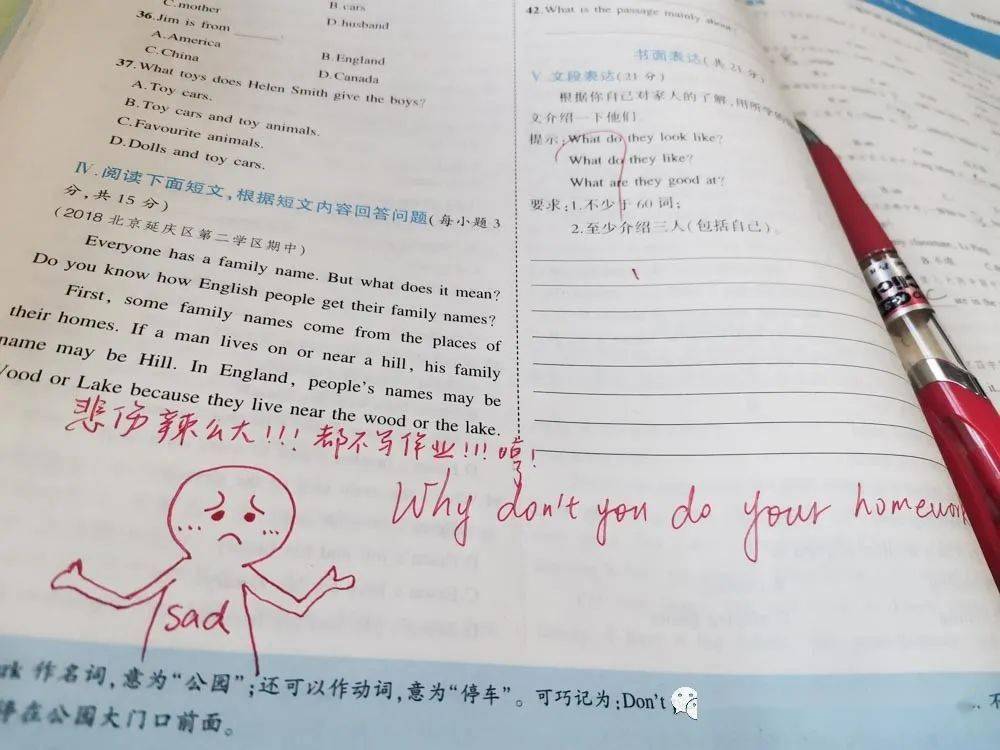 C.mother
B cars
D.husband
36.Jim is from ______.
A.America
B.England
C.China
D.Canada
37.What toys does Helen Smith give the boys?
A.Toy cars.
B.Toy cars and toy animals.
C.Favourite animals.
D.Dolls and toy cars.
Ⅳ.阅读下面短文,根据短文内容回答问题(每小题3
分,共15分)
(2018北京延庆区第二学区期中)
Everyone has a family name. But what does it mean?
Do you know how English people get their family names?
First, some family names come from the places of
their homes. If a man lives on or near a hill, his family
name may be Hill. In England, people's names may be
Wood or Lake because they live near the wood or the lake.
42.What is the passage mainly about?
书面表达(共21分)
Ⅴ.文段表达(21分)
根据你自己对家人的了解,用所学
文介绍一下他们.
提示:What do they look like?
What do they like?
What are they good at?
要求:1.不少于60词;
2.至少介绍三人(包括自己)。
悲伤辣么大!!!都不写作业!!!哼!
Why don't you do your homework
sad
作名词,意为“公园”;还可以作动词,意为“停车”。可巧记为:Don't
在公园大门口前面。